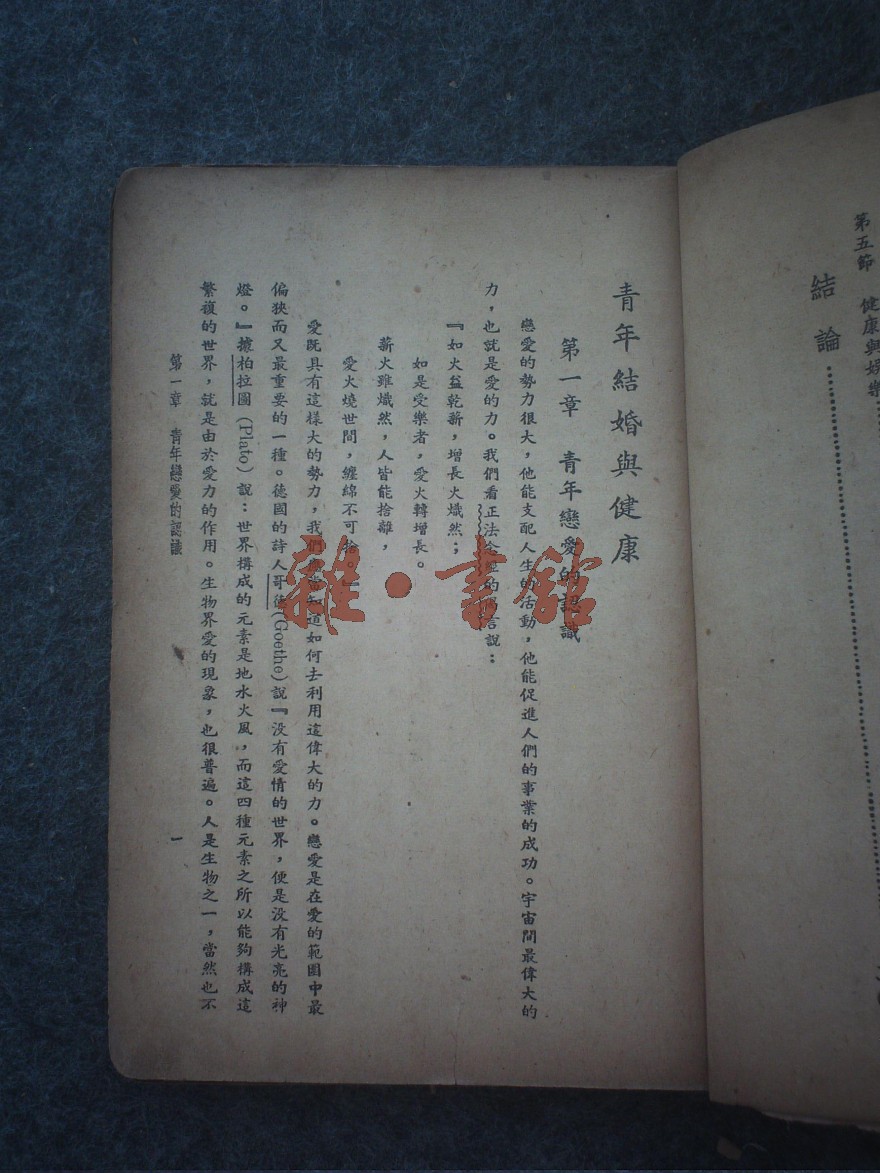 第五節　健康與娛樂
結論
青年結婚與健康
第一章　青年戀愛的認識
戀愛的勢力很大，他能支配人生的活動，他能促進人們的事業的成功。宇宙間最偉大的
力，也就是愛的力。我們看正法念的言說：
『如火益乾薪，增長火熾然；
如是受樂者，愛火轉增長。
薪火雖熾然，人皆能捨離，
愛火燒世間，纏綿不可捨
愛既具有這樣大的勢力，我們當知道如何去利用這偉大的力。戀愛是在愛的範圍中最
偏狹而又最重要的一種。德國的詩人哥德(Goethe)說『没有愛情的世界，便是没有光亮的神
燈。』據柏拉圖(Plato)說：世界構成的元素是地水火風，而這四種元素之所以能夠構成這
繁複的世界，就是由於愛力的作用。生物界愛的現象，也很普遍。人是生物之一，當然也不
第一章　青年戀愛的認識
一
雜·書館